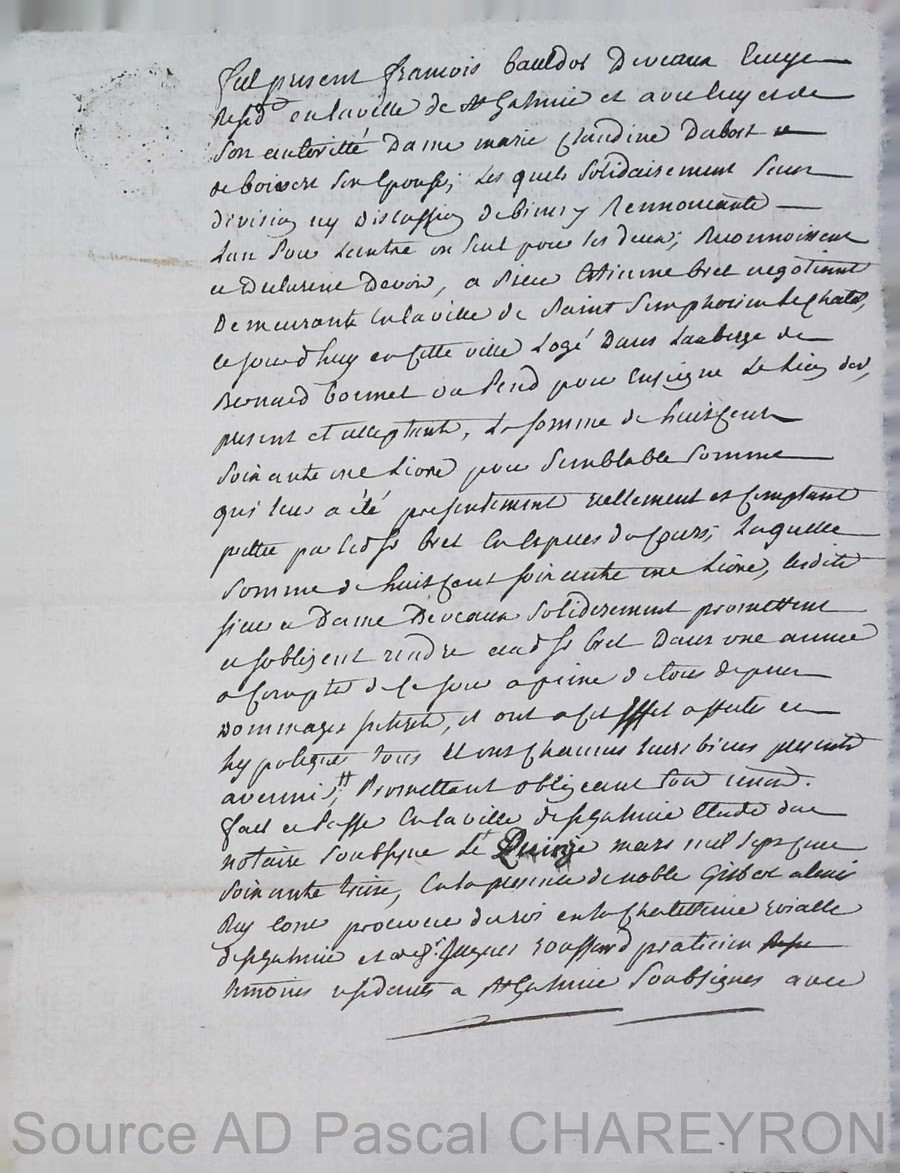 fut present francois bauldos Deveaux
Resid en la ville de st Galmie et avec luy et de
son autoritté Dame marie Claudine Dubost
de boivert son Epouse, Les quels solidairement sans
division ny discussion de biens y Rennoncante
Lun pour Lautre un seul pour les deux, Reconnoissent
et Declarent Devoir, a sieur Estienne bret negotiant
Demeurante en la ville de Saint Simphorien le Chatel,
ce jourdhuy en cette ville Logé Dans Lauberge de
Bernard bonnet ou Pend pour Enseigne Le Lion dor,
present et acceptant, La somme de huit cent
soixante une Livre pour semblable somme
qui leur a été presentement réellement et Comptant
pretté par led sr bret en especes de cours, Laquelle
somme de huit cent soixante une Livre, lesdits
sieur et Dame Deveaux soliderement promettent
et sobligent rendre aud sr bret Dans une année
a Compter de ce jour a peine de tous depens
dommages interets, et ont a cet effet affecté et
hypotequé tous et uns chacuns leurs biens presents
avenir, Promettant obligeant
fait et Passé en la ville de st galmie Etude du
notaire soubsigne Le Quinze mars mil sept cent
soixante treize, en la presence de noble Gilbert alexis
procureur du roi en la Chatellenie roialle
de st galmie et de sr Jacques rouffard praticien
temoins residents a st Galmie soubsignés avec
Source AD Pascal CHAREYRON